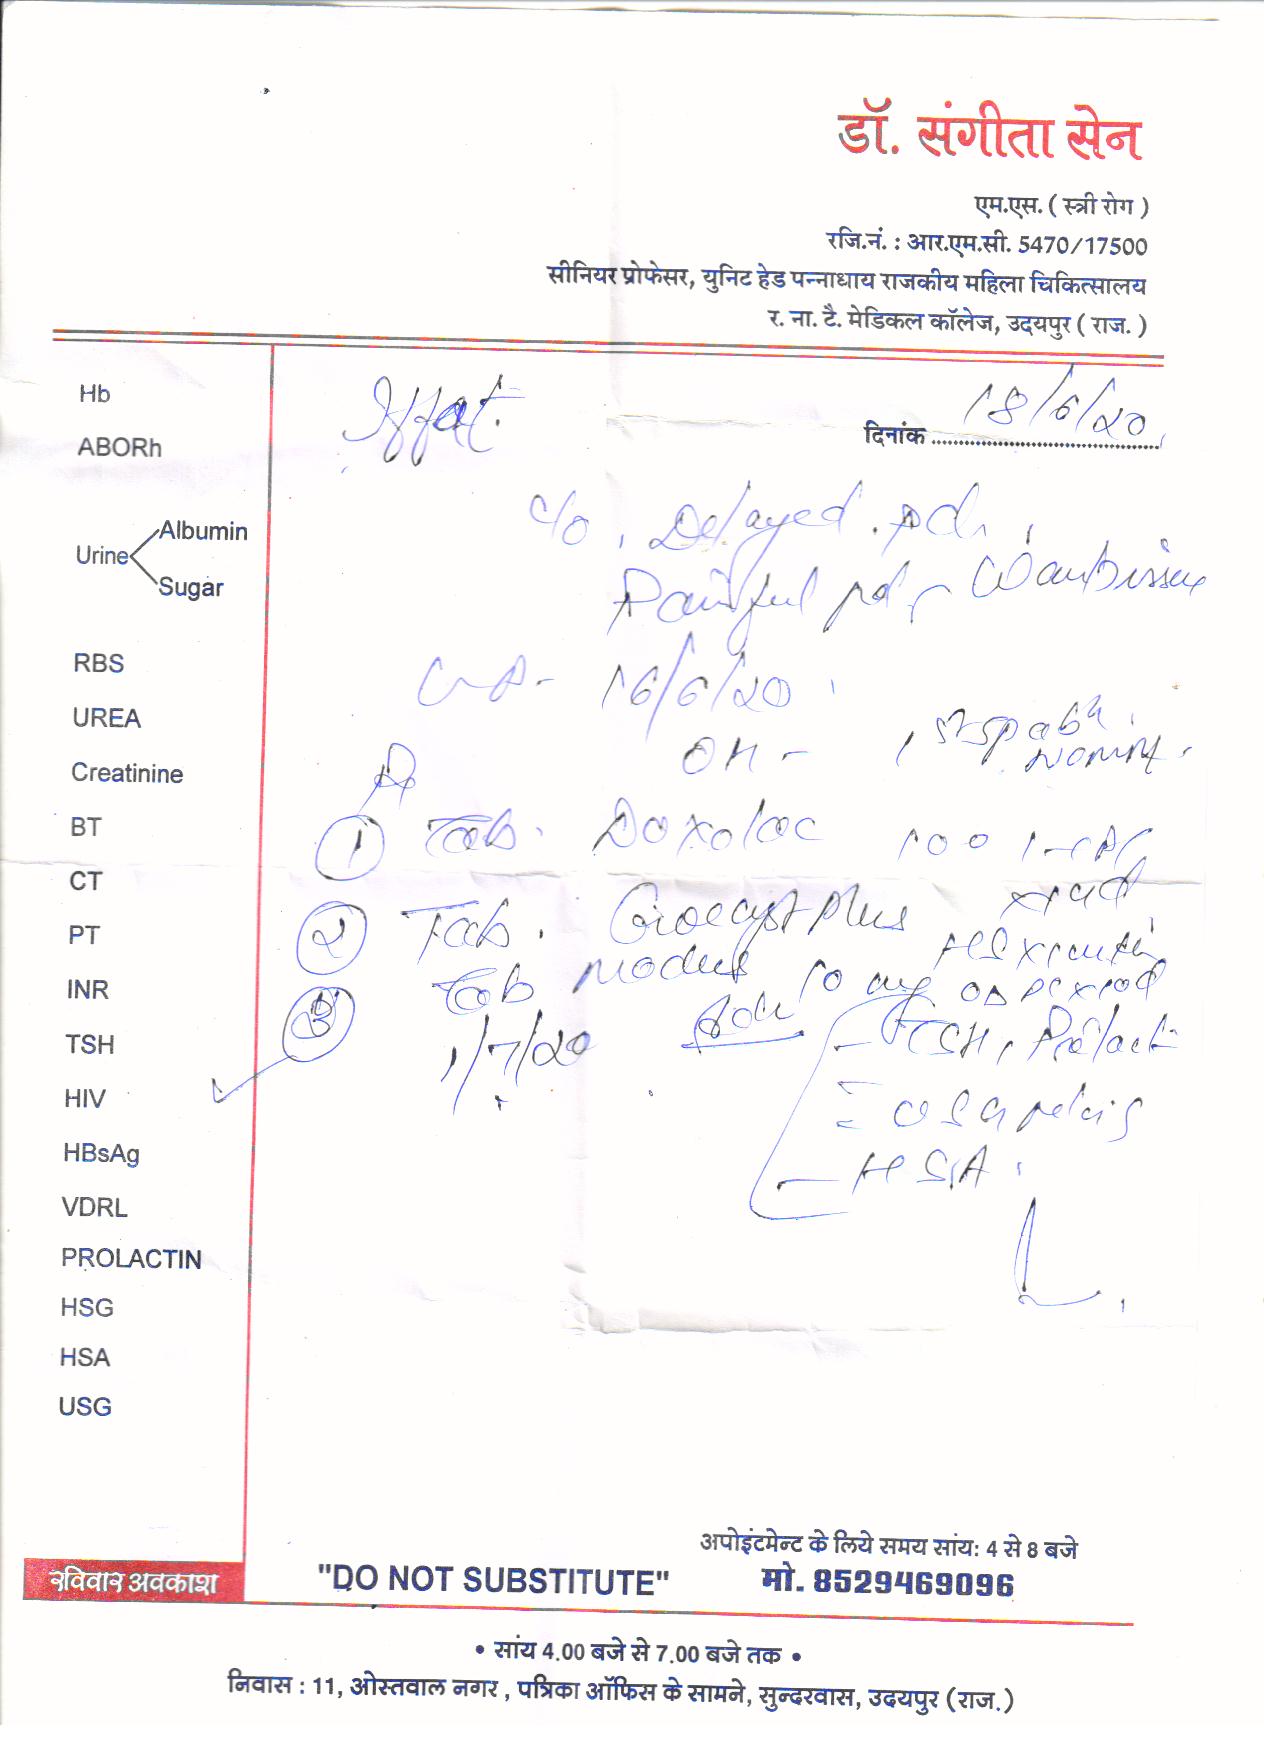 डॉ. संगीता सेन
एम.एस. ( स्त्री रोग )
रजि.नं. : आर.एम.सी. 5470/17500
सीनियर प्रोफेसर, युनिट हेड पन्नाधाय राजकीय महिला चिकित्सालय
र. ना. टै. मेडिकल कॉलेज, उदयपुर ( राज. )
Hb
ABORh
Urine
Albumin
Sugar
RBS
UREA
Creatinine
BT
CT
PT
INR
TSH
HIV
HBsAg
VDRL
PROLACTIN
HSG
HSA
USG
Iffat.
दिनांक 18/6/20
c/o. Delayed. pd.
Painful pd.
16/6/20
OH -
① Tab. Doxolac 100
② Tab. plus
③ Tab 10 mg
1/7/20 Adv
TSH, Prolact
USG pelvis
HSA.
अपोइंटमेन्ट के लिये समय सांय: 4 से 8 बजे
रविवार अवकाश
"DO NOT SUBSTITUTE"
मो. 8529469096
• सांय 4.00 बजे से 7.00 बजे तक •
निवास : 11, ओस्तवाल नगर , पत्रिका ऑफिस के सामने, सुन्दरवास, उदयपुर (राज.)